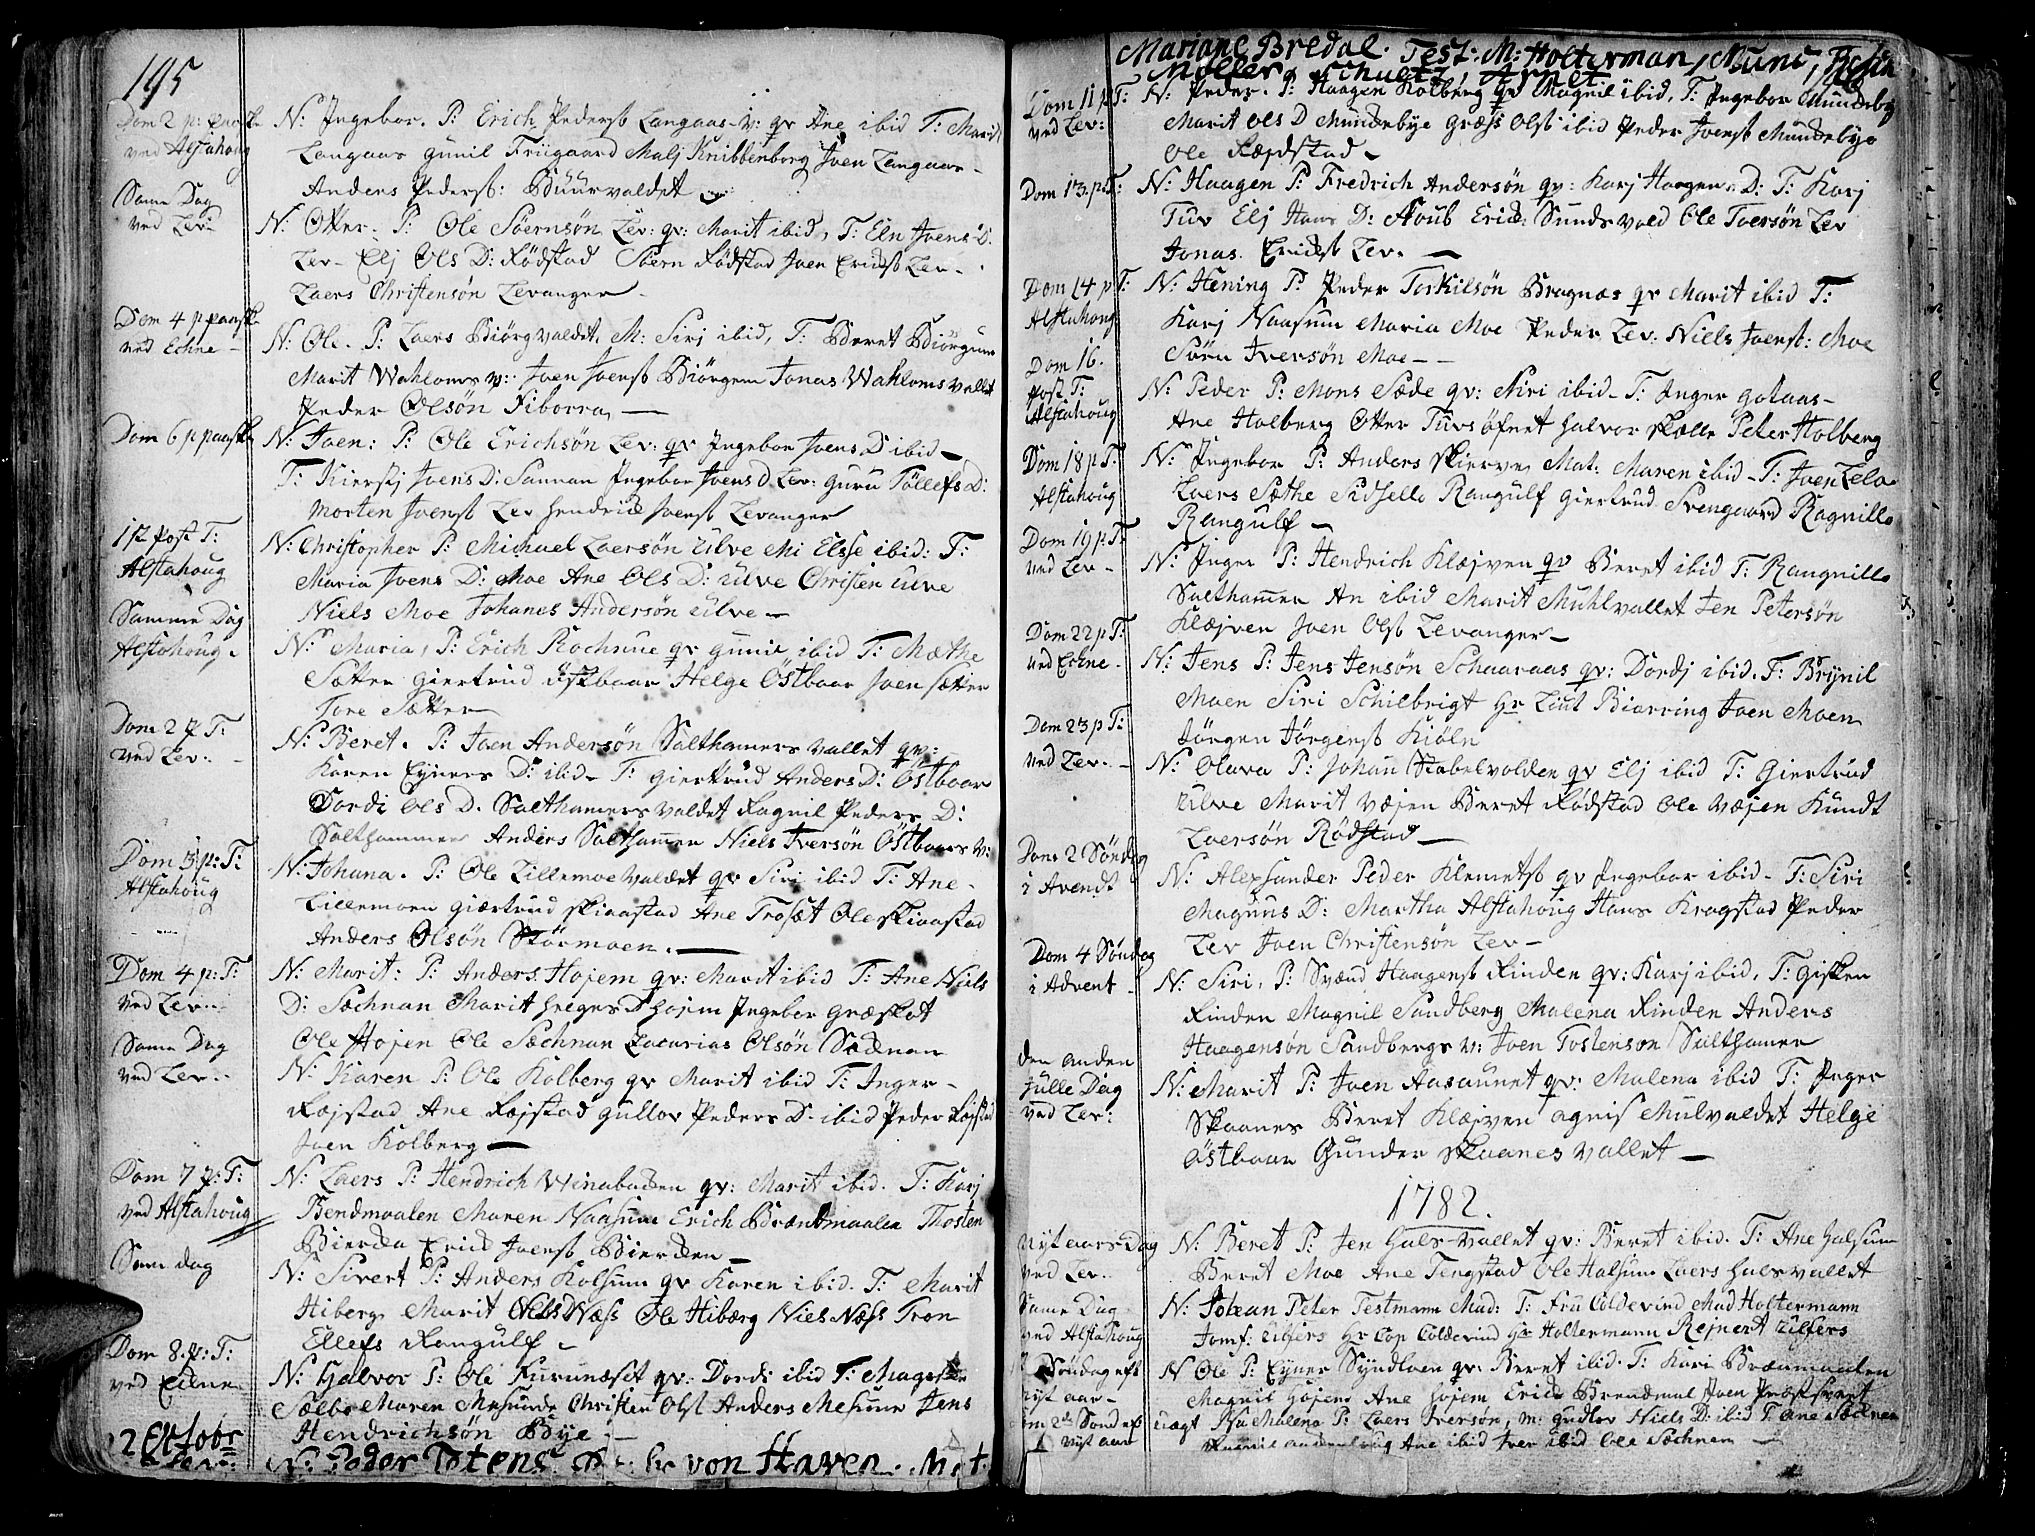 195
Dom 2 p: paaske N: Ingebor. P: Erich Pedersb Langaas-v: qv Ane ibid T: Marit
ved Alstahoug Langaas Gunil Friigaard Malj Knibbenborg Joen Langaas-
Anders Pedersb: Buurvaldet
Same Dag
ved Lev: N: Otter. P: Ole Soernsön Lev: qv: Marit ibid, T: Eln Joens D.
Lev- Elj Ols D: Rödstad Söern Rödstad Joen Ericksb Lev-
Laers Christensön Levanger-
Dom 4 p paaske
ved Echne- N: Ole. P: Laers Biörgvaldet. M: Sirj ibid, T: Beret Biörgum
Marit Wahloms v: Joen Joensb Biörgem Jonas Wahloms vallet
Peder Olsön Fiborra,-
Dom 6 p paaske N: Joen: P: Ole Erichsön Lev: qv Ingebor Joens D ibid-
T: Kierstj Joens D: Sannan Ingebor Joens D Lev: Guru Tollefs D:
Morten Joensb Lev Hendrick Joensb Levanger
1st Post T:
Alstahoug N: Christopher P: Michael Laersön Ulve Mi Elsse ibid: T:
Maria Joens D: Moe Ane Ols D: Ulve Christen Ulve
Niels Moe Johanes Andersön Ulve-
Samme Dag
Alstahoug. N: Maria, P: Erich Rochnue qv Gunil ibid T: Mæthe
Sætter Giertrud Östbaar Helge Östbaar Joen Sætter
Tore Sætter
Dom 2 p T:
ved Lev: N: Beret. P: Joen Andersön Salthamers vallet qv:
Karen Eyners D: ibid- T: Giertrud Anders D: Östbaar
Dordi Ols D. Salthamersvaldet Ragnil Peders D:
Salthammer Anders Salthamer Niels Iversön Östbaars v:
Dom 3 p: T:
Alstahoug N: Johana. P: Ole Lillemoevaldet qv Siri ibid T: Ane-
Lillemoen Giærtrud Skiaastad Ane Trosæt Ole Skiaastad
Anders Olsön Störmoen.-
Dom 4 p: T:
ved Lev: N: Marit: P: Anders Hojem qv: Marit ibid T: Ane Niels
D: Sæchnan Marit Helges D Hojem Ingebor Græslet
Ole Hojen Ole Sæchnan Zacarias Olsön Sæcknan
Same Dag
ved Lev: N: Karen P: Ole Kolberg qv Marit ibid T: Inger-
Ræjstad Ane Røjstad Gullov Peders D: ibid Peder Røjstad
Joen Kolberg-
Dom 7 p: T:
ved Alstahoug N: Laers P: Hendrich Winabacken qv: Marit ibid. T: Karj
Bendmaalen Maren Naasum Erich Brændmaalen Thosten
Bierken Erick Joensb Biercken-
Sam dag N: Sivert P: Anders Kolsum qv Karen ibid. T: Marit
Hiberg Marit Næss Ole Hibærg Niels Næss Tron
Ellefs Rangulf-
Dom 8. p: T:
ved Echne N: Halvor P: Ole Furunæset qv: Dordi ibid T:
Sælbo Maren Mesunde Christen Olsb Anders Mesum Jens
Hendrichsön Bye.-
2 Octobr
N: Peder Totens von Haven.
Mariane Bredal. Test: M: Holterman, Munc,
Möller, Schultz, Arnet
Dom 11 p T:
ved Lev: N: Peder. P: Haagen Kolberg qv Magnil ibid, T: Ingebor Mundeby
Marit Ols D Mundebye Græss Olsb ibid Peder Joensb Mundebye
Ole Rejdstad-
Dom 13. p T: N: Haagen P: Fredrich Andersön qv: Karj Haagens D: T: Karj
Tuv Elj Hans D: Erick Sundsvald Ole Toersön Lev
Jonas Ericksb Lev.-
Dom 14 p T:
Alstahoug N: Hening P: Peder Torkilsön Bragnæs qv Marit ibid T:
Karj Naasum Maria Moe Peder Lev: Niels Joensb: Moe
Sörn Iversön Moe--
Dom 16.
post T:
Alstahoug N: Peder P: Mons Sæde qv: Siri ibid- T: Inger Gotaas-
Ane Holberg Otter Tuvsöfnet Halvor Skælle Peter Holberg
Dom 18 p T:
Alstahoug N: Ingebor P: Anders Skierve Mat: Maren ibid- T: Joen
Laers Sæthe Sidselle Rangulf Giertrud Svengaard Ragnille
Rangulf-
Dom 19 p T:
ved Lev- N: Inger P: Hendrich Klæjven qv Beret ibid T: Rangnille
Salthamer An ibid Marit Muhlvallet Jen Petersön
Klæjven Joen Olsb Levanger-
Dom 22 p T:
ved Echne- N: Jens P: Jens Jensön Schaaraas qv: Dordj ibid. T: Brynil
Moen Siri Schilbrigt Hr Liut Biarring Joen Moen
Jörgen Jörgensb Kiöln
Dom 23 p T:
ved Lev.- N: Olava P: Johan Stabelvolden qv Elj ibid T: Giertrud
Ulve Marit Væjen Beret Rödstad Ole Væjen Kundt
Laersön Rödstad-
Dom 2 Söndag
i Avendt N: Alexsander Peder Klemetsb qv Ingebor ibid- T: Siri
Maguns D: Martha Alstahoug Hans Kragstad Peder
Lev Joen Christensön Lev-
Dom 4 Söndag
i Advent- N: Siri, P: Svend Haagensb Rinden qv: Karj ibid, T: Gisken
Rinden Magnil Sandberg Malena Rinden Anders
Haagensön Sandbergs v: Joen Tostensön Salthamer
den anden
Julle Dag
ved Lev: N: Marit P: Joen Aasaunet qv: Malena ibid T: Inger
Skaanes Beret Klæjven Agnis Mulvaldet Helge
Östbaar Gunder Skaanes vallet-
1782.
Nytaars Dag
ved Lev. N: Beret P: Jen Hals-vallet qv: Beret ibid. T: Ane Halsum
Beret Moe Ane Tengstad Ole Halsum Laers Halsvallet
Same Dag
ved Alstahoug N: Johan Peter Testmann Mad: T: Fru Coldevind Mad Holtermann
Jomf: Ulfers Hr Cap Coldevind Hr Holtermann Rejnert Ulfers
Söndag eft
nyt aar- N Ole P: Eyner Syndlaen qv: Beret ibid. T: Kari Brænmaalen
Magnil Hojem Ane Hojem Erick Brendmal Joen
Dom 2de Sond eft
nyt aar Malena P: Laers Iversön, m: Gudlov Niels D: ibid T: Ane Sæchnan
Ane ibid Iver ibid Ole Sæchnen-